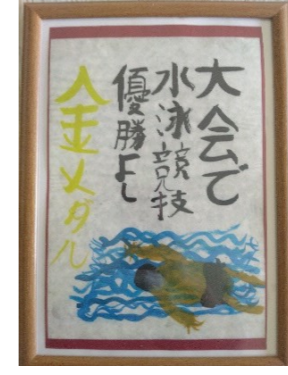 大会で
水泳競技
優勝よし
金メダル